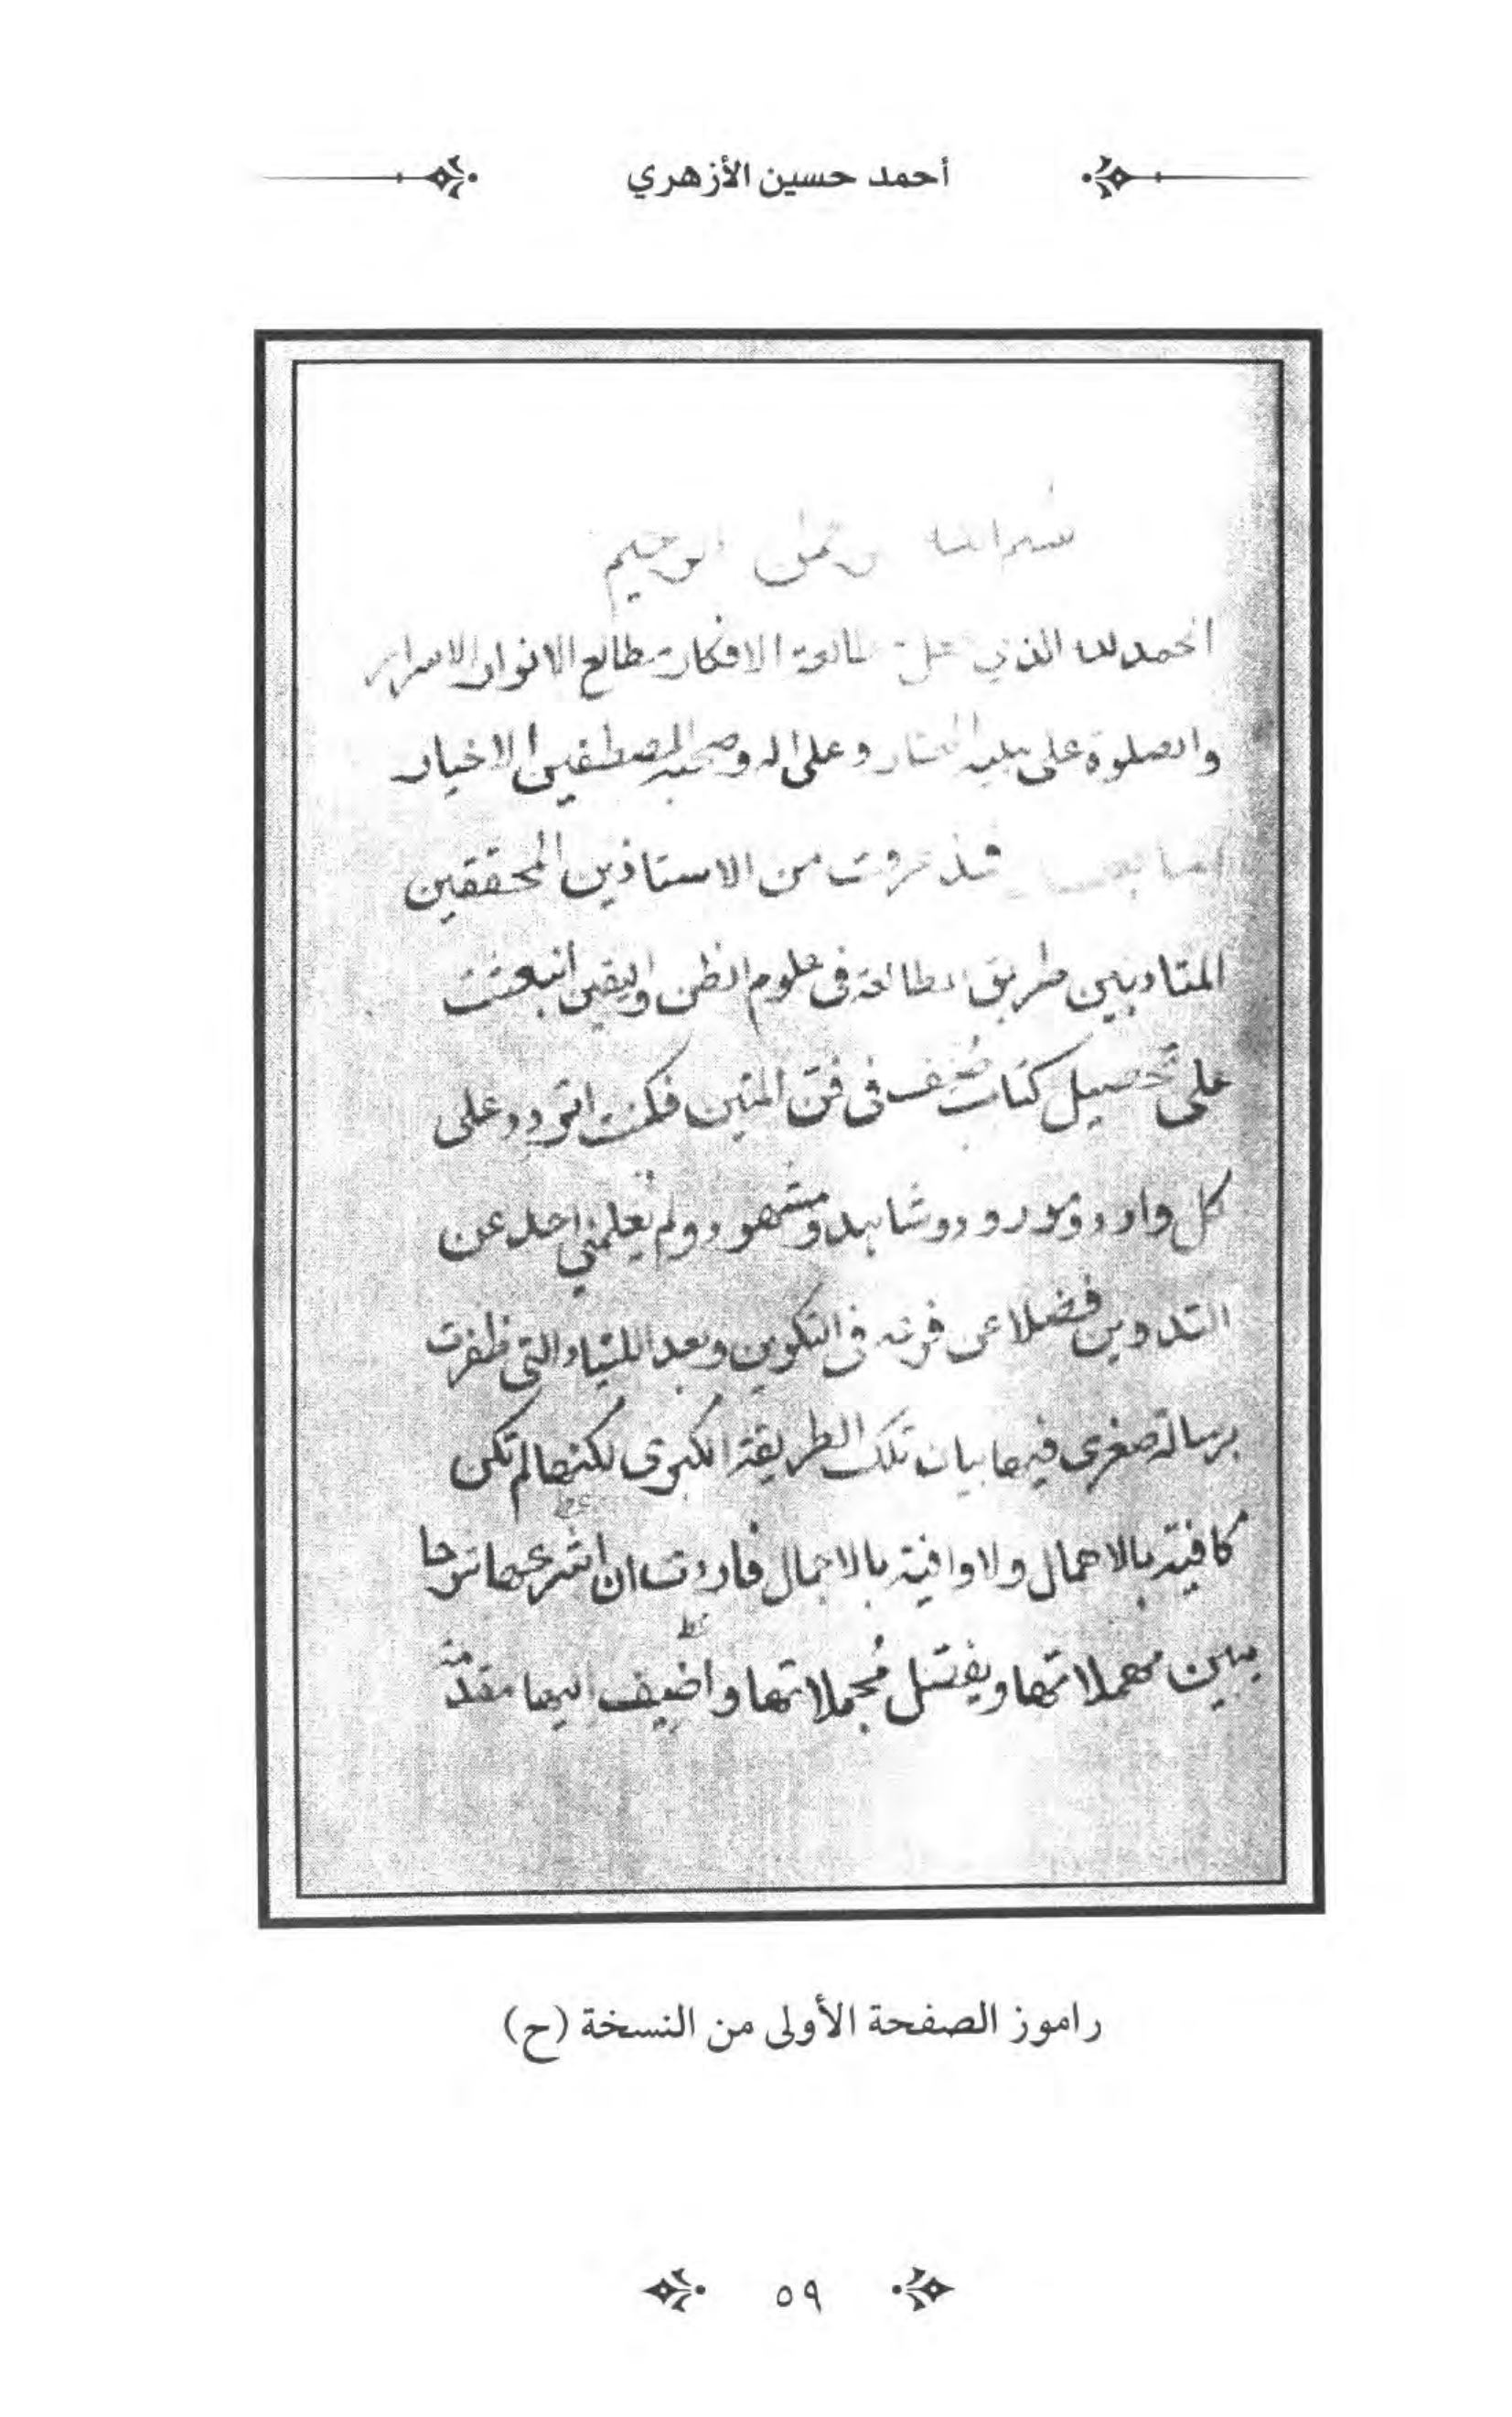 أحمد حسين الأزهري
الرحيم
الحمد لله الذي الافكار مطالع الانوار الاسرار
والصلوة على المختار وعلى اله وصحبه المصطفين الاخيار
اما بعد عرفت من الاستاذين المحققين
المتادبين طريق المطالعة فى علوم الظن واليقين انبعثت
على تحصيل كتاب صنف فى فن المتين فكنت اتردد على
كل وارد ومورود وشاهد ومشهود ولم يعلمني احد عن
التدوين فضلا عن فى التكوين وبعد اللتيا والتى ظفرت
برسالة صغرى فيها بيان تلك الطريقة الكبرى لكنها لم تكن
كافية بالاهمال ولا وافية بالاجمال فاردت ان اشرحها شرحا
يبين مهملاتها ويفصل مجملاتها واضيف اليها مقدمة
راموز الصفحة الأولى من النسخة (ح)
٥٩